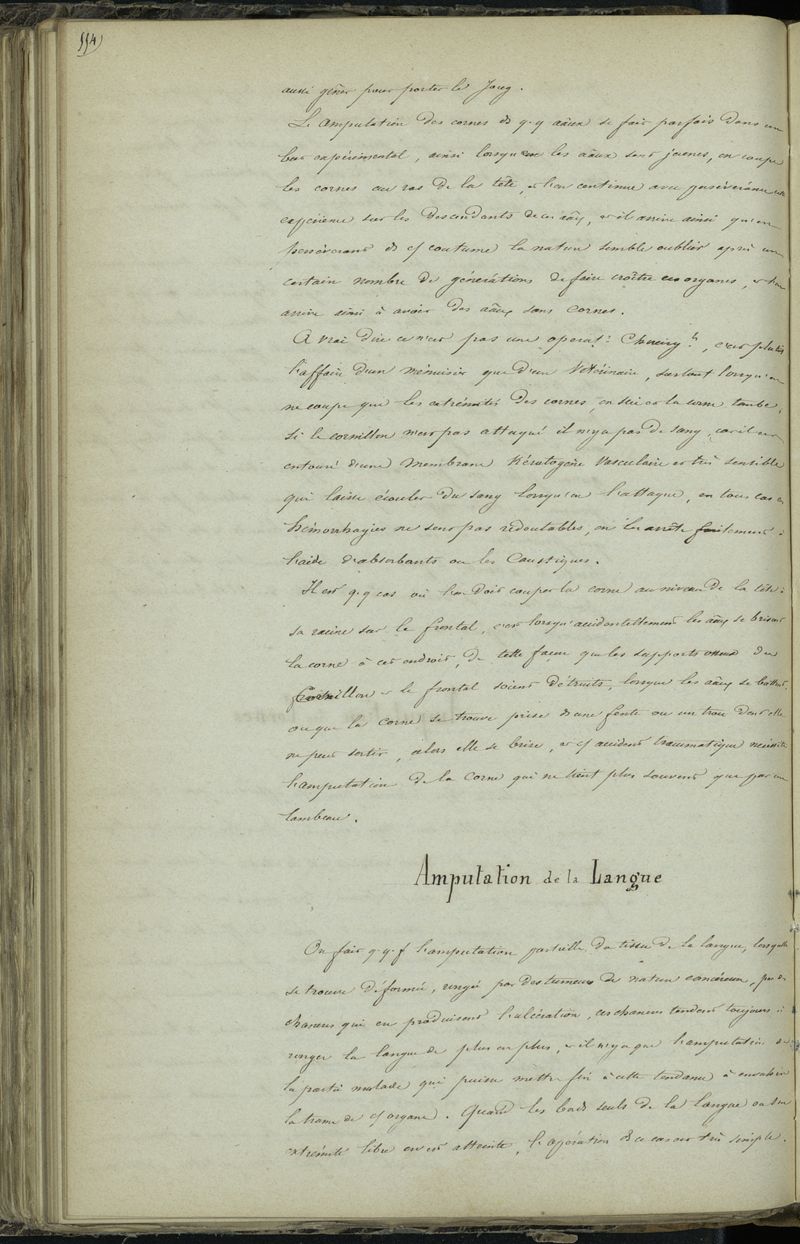 554
aussi gêner pour porter le Joug.
L'Amputation des cornes ds q.q aãux se fait parfois dans un
but expérimental, ainsi lorsque les aãux sont jeunes, on coupe
les cornes au ras de la tête, et l'on continue avec persévérance
expérience sur les descendants de ces aãx, et il arrive ainsi qu'en
persévérant ds cf coutume la nature semble oublier après un
certain nombre de générations de faire croître ces organes, et l'on
arrive ainsi à avoir des aãux sans cornes.
A vrai dire ce n'est pas une opérat. Chirurg., c'est plutôt
l'affaire d'un menuisier que d'un Vétérinaire, surtout lorsqu'on
ne coupe que les extrémités des cornes, on scie et la corne tombe,
si le cornillon n'est pas attaqué il n'y a pas de sang, car il est
entouré d'une Membrane Kératogène Vasculaire et très sensible
qui laisse écouler du sang lorsqu'on l'attaque, en tous cas
hémorrhagies ne sont pas redoutables, on les arrête facilement à
l'aide d'absorbants ou les Caustiques.
Il est q.q cas où l'on doit couper la corne au niveau de la tête:
sa racine sur le frontal, c'est lorsqu'accidentellement les aãx se brisent
la corne à cet endroit, de telle façon que les supports osseux du
Cornillon et le frontal soient détruits, lorsque les aãux se battent,
ou que la corne se trouve prise ds une fente ou un trou dont elle
ne peut sortir, alors elle se brise, et cf accident traumatique nécessite
l'amputation de la Corne qui ne tient plus souvent que par un
lambeau.
Amputation de la Langue
On fait q.q.f l'amputation partielle du tissu de la langue, lorsqu'elle
se trouve déformée, rongée par des tumeurs de nature cancéreuse,
chancres qui en produisent l'ulcération, ces chancres tendent toujours à
ronger la langue de plus en plus, et il n'y a que l'amputation de
la partie malade qui puisse mettre fin à cette tendance à envahir
la trame de cf organe. Quand les bords seuls de la langue ou son
extrémité libre en est atteinte, l'opération ds ce cas est très simple.